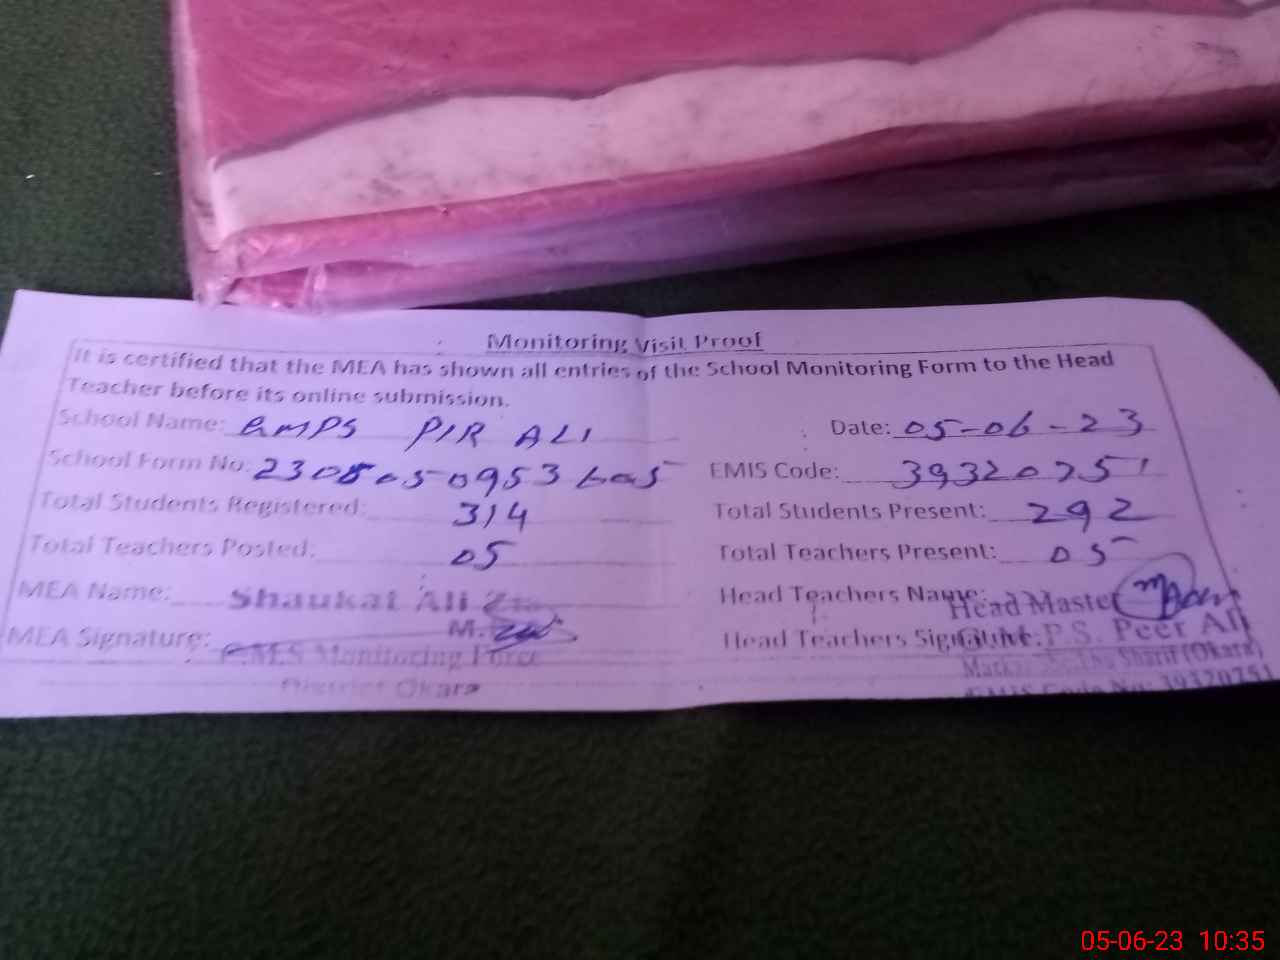 Monitoring Visit Proof
It is certified that the MEA has shown all entries of the School Monitoring Form to the Head
Teacher before its online submission.
School Name: GMPS PIR ALI Date: 05-06-23
School Form No: 2305050953605 EMIS Code: 39320751
Total Students Registered: 314 Total Students Present: 292
Total Teachers Posted: 05 Total Teachers Present: 05
MEA Name: Shaukat Ali Zia Head Teachers Name: Head Master
MEA Signature: M. Zia Head Teachers Signature: P.S. Peer Ali
Monitoring Force Sharif (Okara)
District Okara EMIS Code No: 39320751
05-06-23 10:35